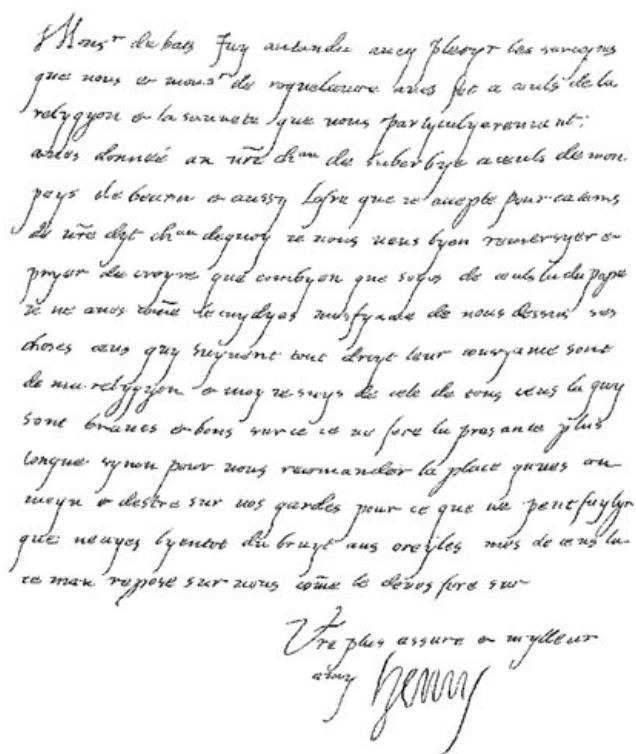 Monsr de bats Jay antandu avec plesyr les servyces
que vous & monsr de roquelaure aves fet a ceuls de la
relygyon & la sauvete que vous partyculyeremant
aves donnee an vre chau de suberbye a ceuls de mon
pays de bearn & aussy lofre que je accepte pour ce tams
de vre dyt chau dequoy je vous veus byen remersyer &
pryer de croyre que combyen que soyes de ceuls la du pape
je ne aves come le cuydyes mesfyance de vous dessus ses
choses ceus quy suyvent tout droyt leur consyance sont
de ma relygyon & moy je suys de cele de tous ceus la quy
sont braves & bons sur ce je ne fere la presante plus
longue synon pour vous recomander la place quaves an
meyn & destre sur vos gardes pour ce que ne peut faylyr
que neuyes byentot du bruyt aus oreyles mes de ceus la
je man repose sur vous come le deves fere sur
Vre plus assure & mylleur
amy Henry